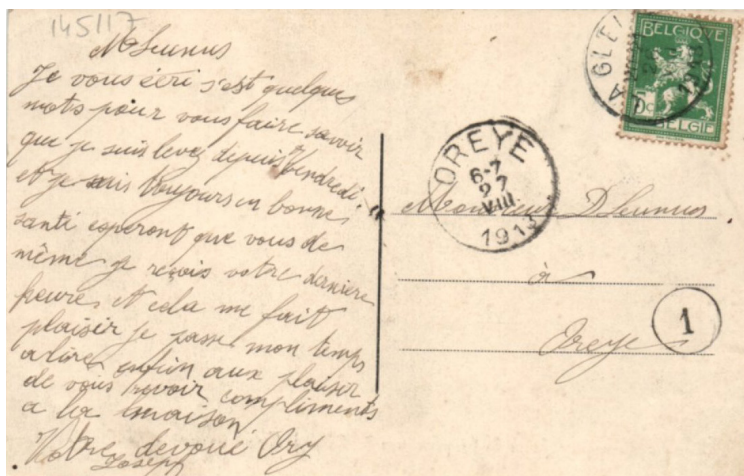 145117
Je vous écri s'est quelques
mots pour vous faire savoir
que je suis levez depuis Vendredi
et je suis toujours en bonne
santé esperont que vous de
même je reçois votre derniere
heure et cela me fait
plaisir je passe mon temps
a lire enfin aux plaisir
de vous revoir compliments
a la maison
Votre devoué Ory
Joseph
BELGIQUE
5c
BELGIË
LA GLEI
OREYE
6-7
27
VIII
1913
Monsieur
à
Oreye
1